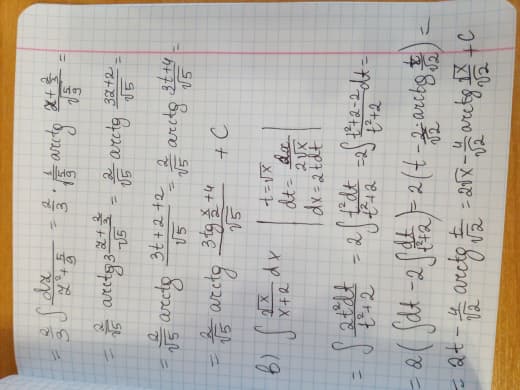 = 2/3 ∫ dx/(z² + 5/9) = 2/3 · 1/√(5/9) arctg (z + 2/3)/√(5/9) =
= 2/√5 arctg 3 (z + 2/3)/√5 = 2/√5 arctg (3z+2)/√5 =
= 2/√5 arctg (3t+2+2)/√5 = 2/√5 arctg (3t+4)/√5 =
= 2/√5 arctg (3tg x/2 + 4)/√5 + C
b) ∫ √x/(x+2) dx | t = √x
dt = dx/(2√x)
dx = 2tdt |
= ∫ 2t²dt/(t²+2) = 2∫ t²dt/(t²+2) = 2∫ (t²+2-2)/(t²+2) dt =
= 2(∫dt - 2∫ dt/(t²+2)) = 2(t - 2/√2 arctg t/√2) =
= 2t - 4/√2 arctg t/√2 = 2√x - 4/√2 arctg √x/√2 + C